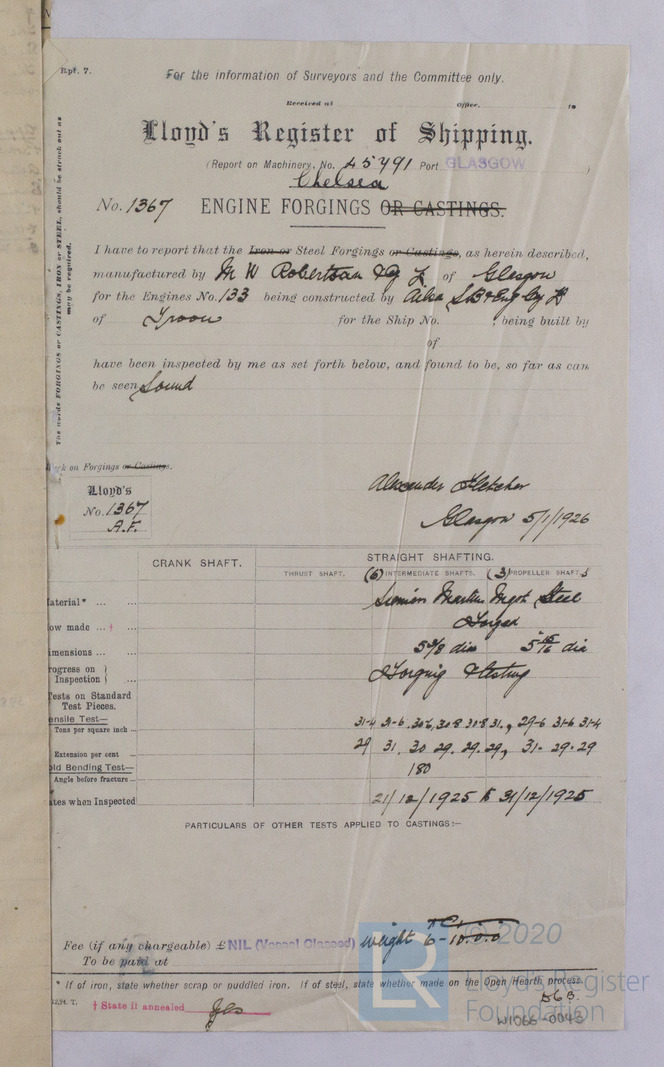 Rpt. 7.
For the information of Surveyors and the Committee only.
Received at Office, 19
Lloyd's Register of Shipping.
(Report on Machinery, No. 45491 Port GLASGOW )
Chelsea
No. 1367 ENGINE FORGINGS OR CASTINGS.
The words FORGINGS or CASTINGS, IRON or STEEL, should be struck out as may be required.
I have to report that the Iron or Steel Forgings or Castings, as herein described,
manufactured by W Robertson & Cy Ld of Glasgow
for the Engines No. 133 being constructed by Ailsa S.B & Eng Cy Ld
of Troon for the Ship No. , being built by
of
have been inspected by me as set forth below, and found to be, so far as can
be seen Sound
on Forgings or Castings.
Lloyd's
No. 1367
A.F.
Alexander Fletcher
Glasgow 5/1/1926
CRANK SHAFT.
STRAIGHT SHAFTING.
THRUST SHAFT. (6) INTERMEDIATE SHAFTS. (3) PROPELLER SHAFTS
aterial * ... ... Siemens Martin Ingot Steel
ow made ... † ... Forged
imensions ... ... 5 3/8 dia 5 15/16 dia
rogress on Inspection Forging & testing
Tests on Standard Test Pieces.
ensile Test—
Tons per square inch 31-4 31-6 30-6 30-8 30-8 31., 29-6 31-6 31-4
Extension per cent 29 31. 30 29. 29. 29, 31- 29-29
ld Bending Test—
Angle before fracture 180
tes when Inspected 21/12/1925 to 31/12/1925
PARTICULARS OF OTHER TESTS APPLIED TO CASTINGS:—
Fee (if any chargeable) £ NIL (Vessel Classed) weight 6-10.0.0
To be paid at
* If of iron, state whether scrap or puddled iron. If of steel, state whether made on the Open Hearth process.
† State if annealed yes
© 2020
LR
Lloyd's Register
Foundation
W1066-0043